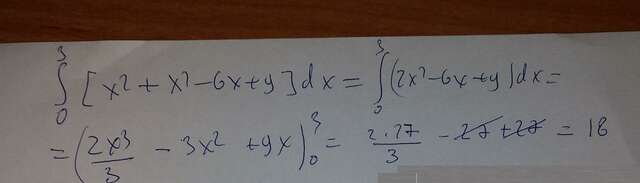 ∫₀³ [x² + x² - 6x + 9] dx = ∫₀³ (2x² - 6x + 9) dx =
= (2x³/3 - 3x² + 9x)₀³ = 2·27/3 - 27 + 27 = 18